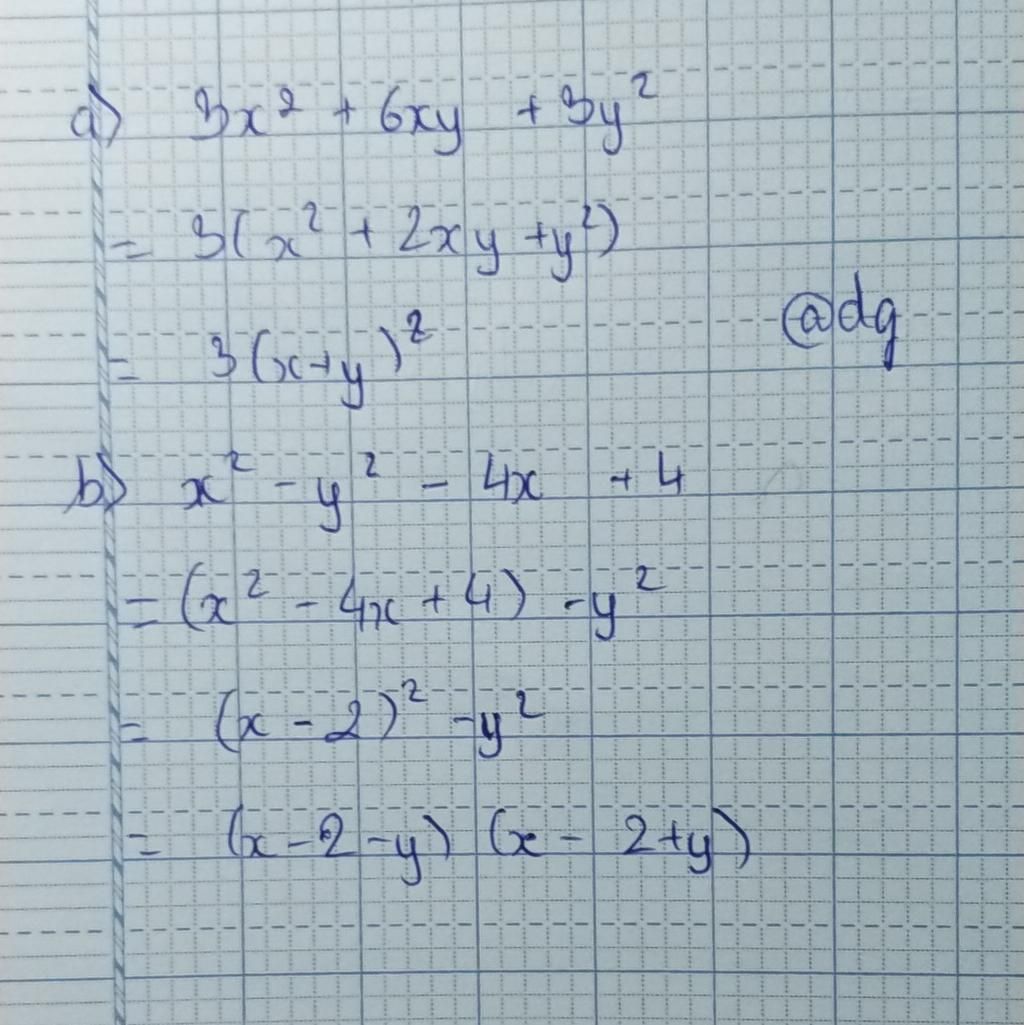 a) 3x² + 6xy + 3y²
= 3(x² + 2xy + y²)
@dg
= 3(x+y)²
b) x² - y² - 4x + 4
= (x² - 4x + 4) - y²
= (x - 2)² - y²
= (x - 2 - y) (x - 2 + y)